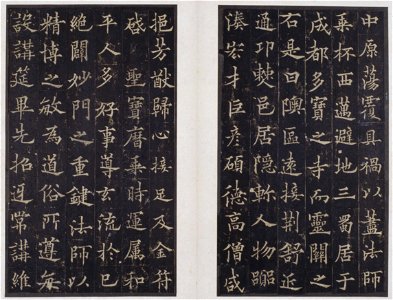 中原蕩覆具禍以藎法師
乘杯西邁避地三蜀居于
成都多寶之寺而靈關之
右是曰隩區遠接荊舒近
通邛僰邑居隱軫人物躡
湊宏才巨彦碩德高僧咸
挹芳猷歸心接足及金符
啓 聖寶曆乘時運属和
平人多好事導玄流於已
絕闢妙門之重鍵法師以
精博之敏為道俗所遵每
設講筵畢先招迓常講維